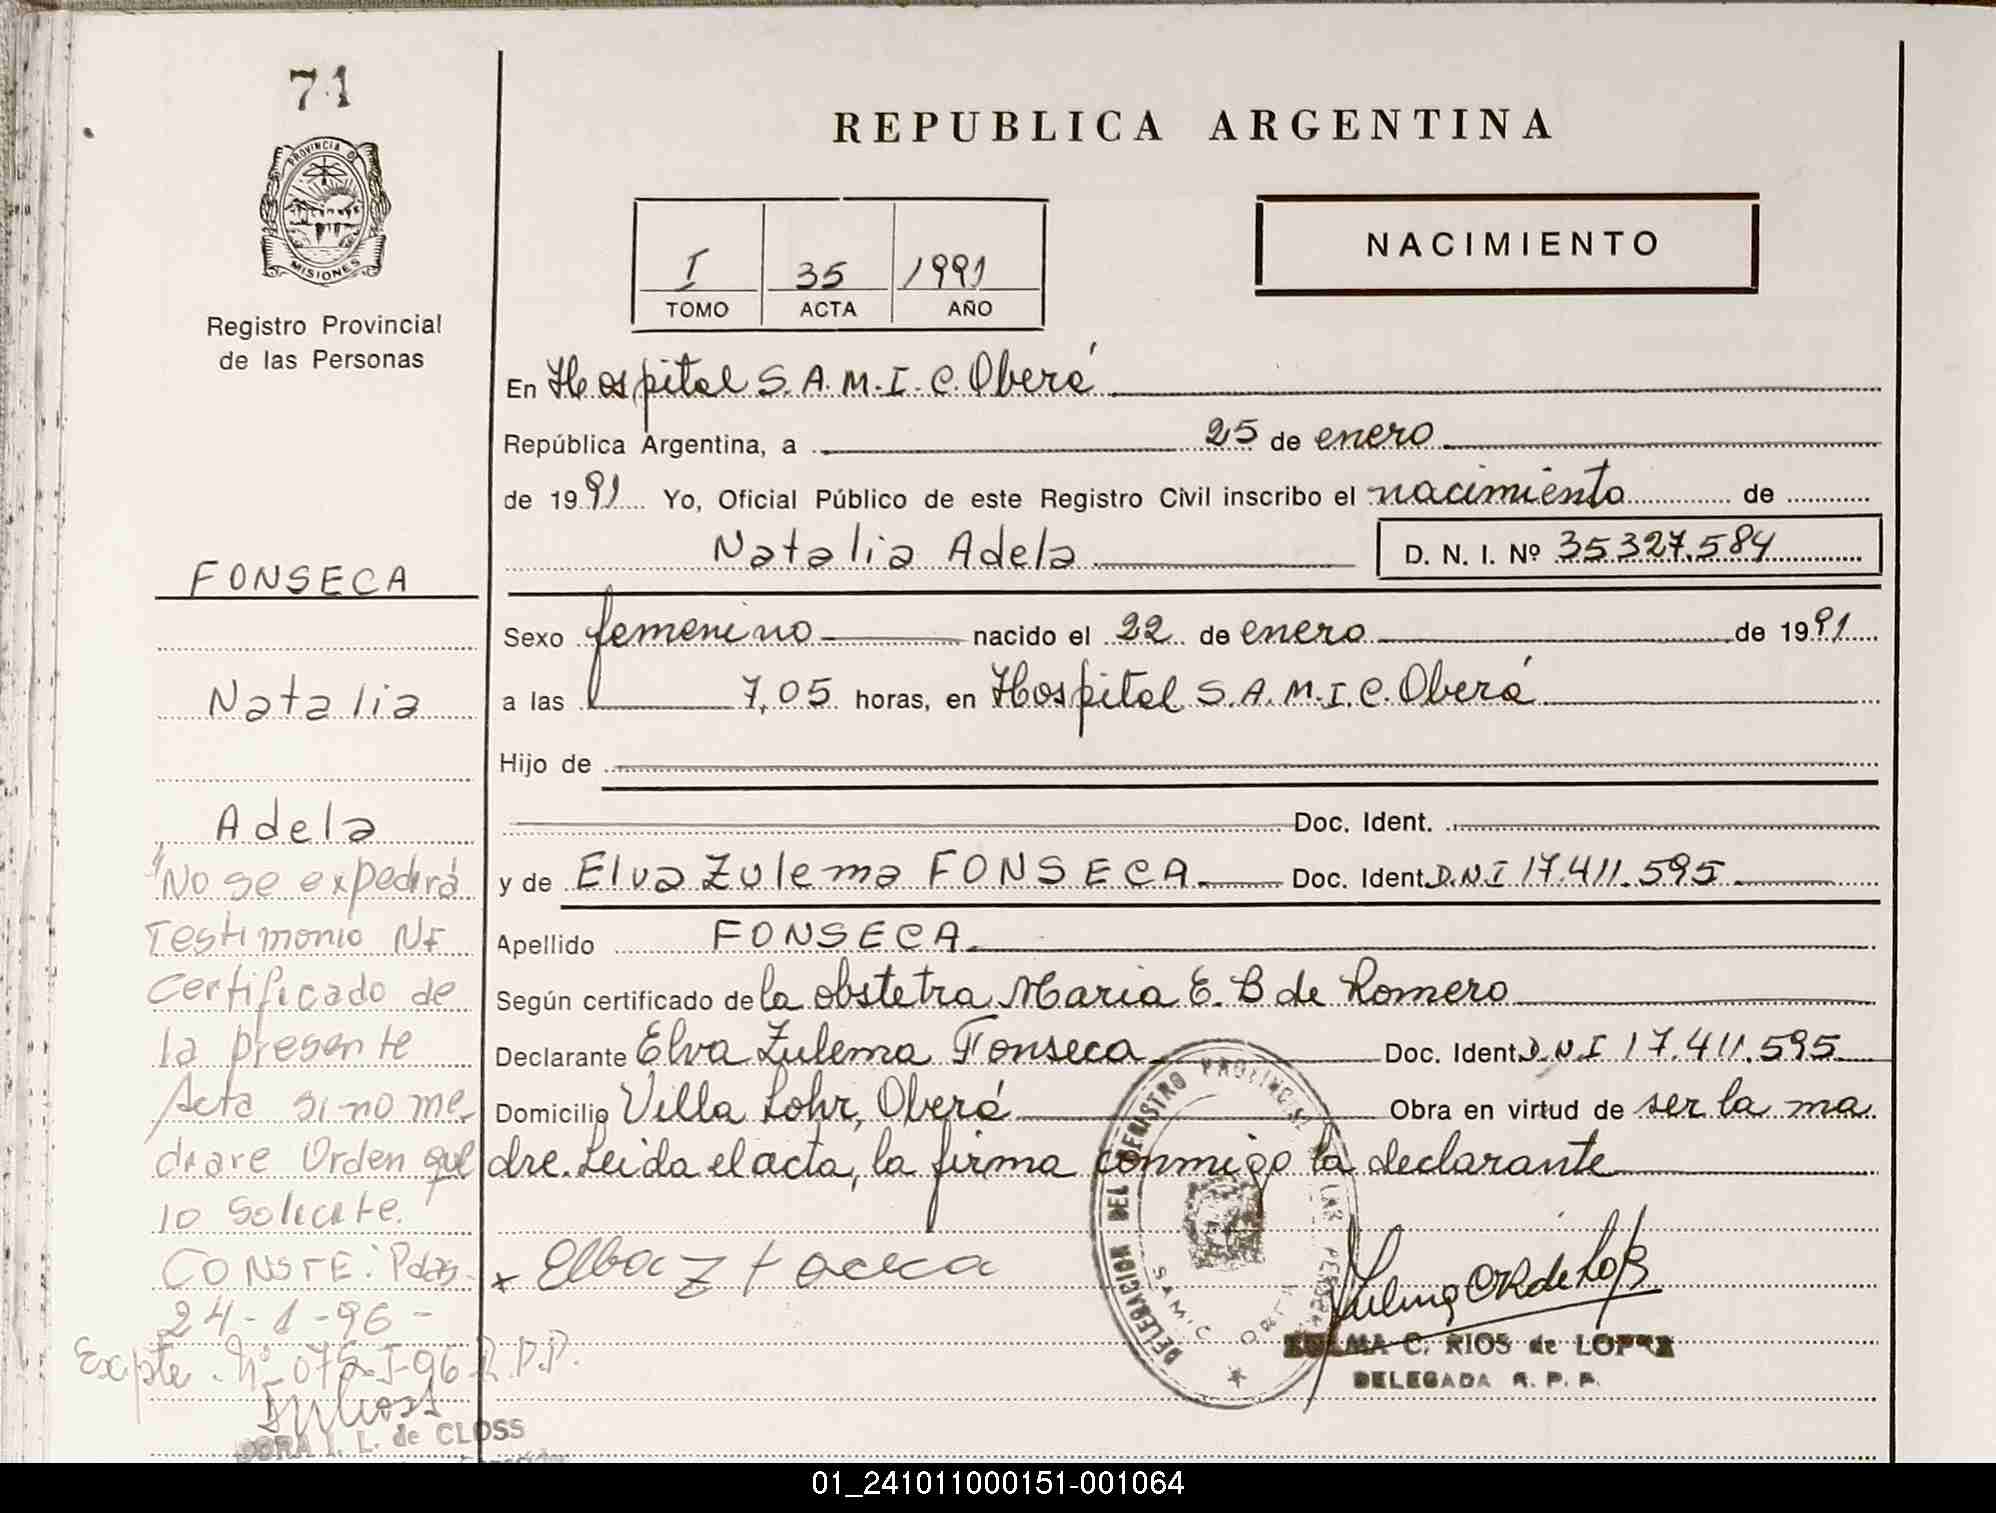 71
PROVINCIA DE
MISIONES
Registro Provincial
de las Personas
FONSECA
Natalia
Adela
"No se expedirá
Testimonio NI
Certificado de
la presente
Acta si no me_
diare Orden que
lo solicite.
CONSTE: Pdas.
24-1-96-
Expte. Nº 075-I-96 R.P.P.
DORA I. L. de CLOSS
REPUBLICA ARGENTINA
NACIMIENTO
I 35 1991
TOMO ACTA AÑO
En Hospital S.A.M.I.C. Oberá
República Argentina, a 25 de enero
de 1991 Yo, Oficial Público de este Registro Civil inscribo el nacimiento de
Natalia Adela D. N. I. Nº 35.327.584
Sexo femenino nacido el 22 de enero de 1991
a las 7,05 horas, en Hospital S.A.M.I.C. Oberá
Hijo de
Doc. Ident.
y de Elva Zulema FONSECA Doc. Ident. D.N.I 17.411.595
Apellido FONSECA
Según certificado de la obstetra Maria E. B de Romero
Declarante Elva Zulema Fonseca Doc. Ident. D.N.I 17.411.595
Domicilio Villa Lohr, Oberá Obra en virtud de ser la ma
dre. Leida el acta, la firma conmigo la declarante
x Elba Z
DELEGACION DEL REGISTRO PROVINCIAL DE LAS PERSONAS
SAMIC OBERA
ZULMA C. RIOS de LOPEZ
DELEGADA R. P. P.
01_241011000151-001064